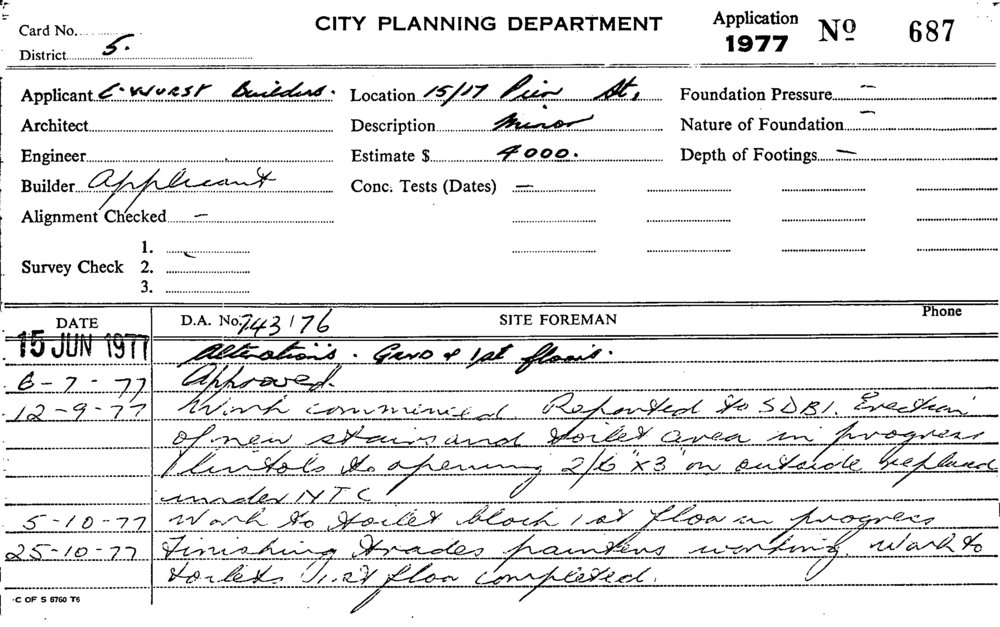 Card No.
CITY PLANNING DEPARTMENT
Application 1977 No 687
District 5.
Applicant C. WURST Builders. Location 15/17 Pier St, Foundation Pressure —
Architect Description Minor Nature of Foundation —
Engineer Estimate $ 4000. Depth of Footings —
Builder Applicant Conc. Tests (Dates) —
Alignment Checked —
Survey Check 1.
2.
3.
DATE D.A. No. 743/76 SITE FOREMAN Phone
15 JUN 1977 Alterations. GRND & 1st floors.
6-7-77 Approved.
12-9-77 Work commenced Reported to SDBI. Erection
of new stairs and toilet area in progress
lintols to opening 2/6"x3" on outside replaced
under NTC
5-10-77 Work to toilet block 1st floor in progress
25-10-77 Finishing trades painters working. Work to
toilets 1st floor completed.
C OF S 6760 T6